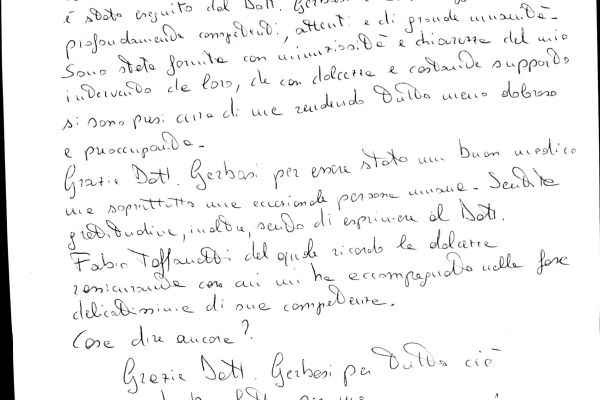 è stato eseguito dal Dott. Gerbasi e
profondamente competenti, attenti e di grande umanità.
Sono stata fornita con minuziosità e chiarezza del mio
intervento da loro, che con dolcezza e costante supporto
si sono presi cura di me rendendo tutto meno doloroso
e preoccupante.
Grazie Dott. Gerbasi per essere stato un buon medico
ma soprattutto una eccezionale persona umana. Sentita
gratitudine, inoltre, sento di esprimere al Dott.
Fabio Toffanetti del quale ricordo la dolcezza
rassicurante con cui mi ha accompagnato nella fase
delicatissima di sua competenza.
Cosa dire ancora?
Grazie Dott. Gerbasi per tutto ciò